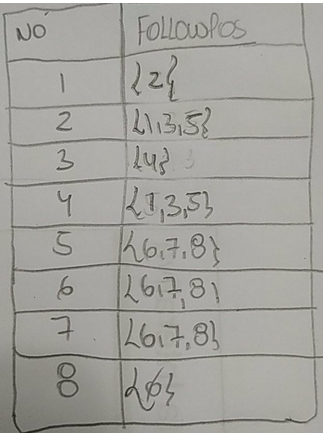 NÓ FOLLOWPOS
1 {2}
2 {1,3,5}
3 {4}
4 {1,3,5}
5 {6,7,8}
6 {6,7,8}
7 {6,7,8}
8 {ø}